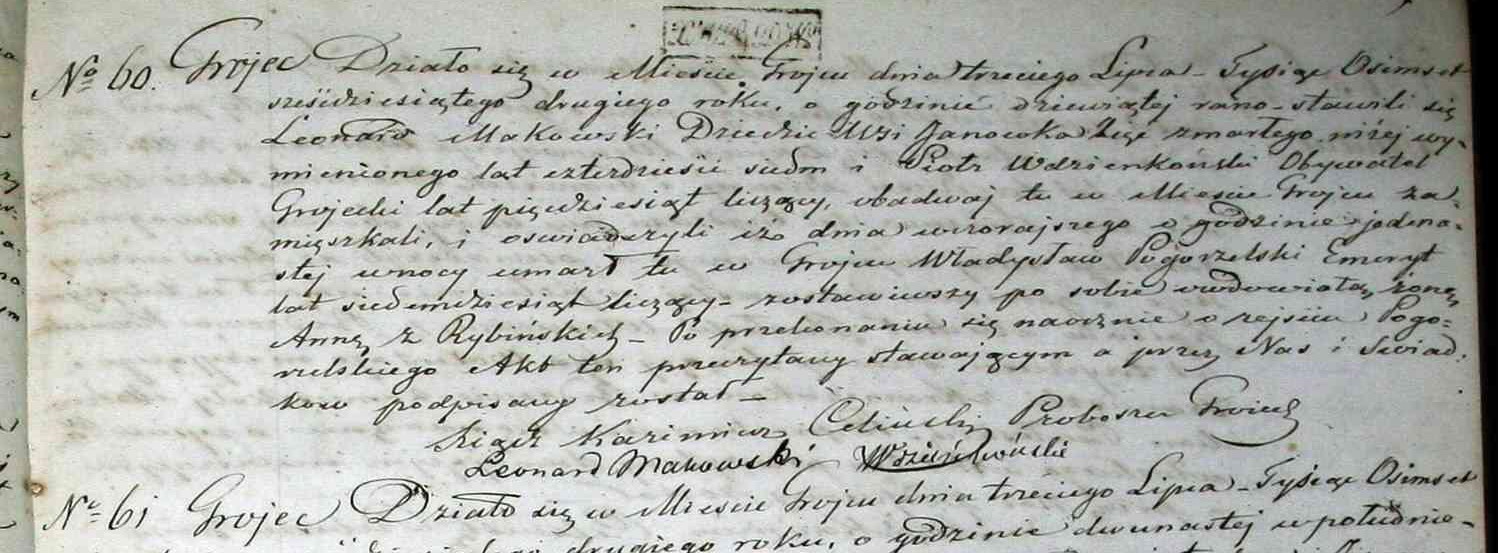 No 60. Grojec Działo się w Mieście Grojcu dnia trzeciego Lipca - Tysiąc Osimset
sześćdziesiątego drugiego roku, o godzinie dziewiątej rano - stawili się
Leonard Makowski Dziedzic Wsi Janowka Zięć zmarłego niżej wy-
mienionego lat czterdzieści siedm i Piotr Wdzienkoński Obywatel
Grojecki lat pięćdziesiąt liczący, obadwaj tu w Mieście Grojcu za-
mięszkali, i oswiadczyli iż dnia wczorajszego o godzinie jedena-
stej wnocy umarł tu w Grojcu Władysław Pogorzelski Emeryt
lat siedemdziesiąt liczący - zostawiwszy po sobie owdowiałą żonę
Annę z Rybińskich - Po przekonaniu się naocznie o zejściu Pogo-
rzelskiego Akt ten przeczytany stawającym a przez Nas i Swiad-
kow podpisany został -
Xiądz Kazimierz Proboszcz Grojecki
Leonard Makowski
No 61 Grojec Działo się w Mieście Grojcu dnia trzeciego Lipca - Tysiąc Osimset
drugiego roku, o godzinie dwunastej wpołudnie -